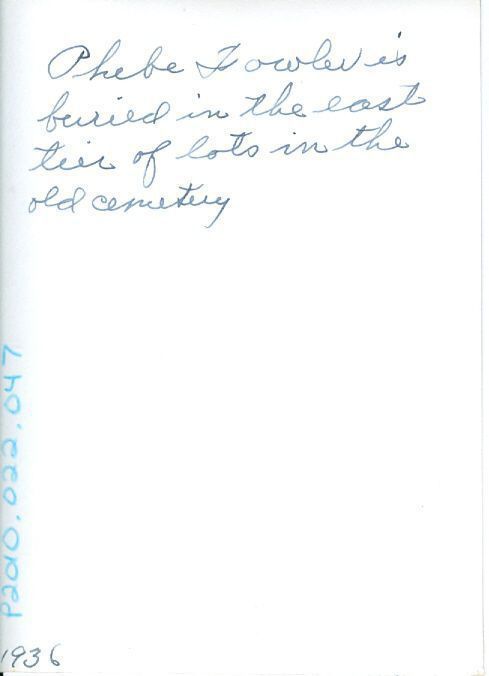 Phebe Fowler is
buried in the east
tier of lots in the
old cemetery
P2010.022.047
1936